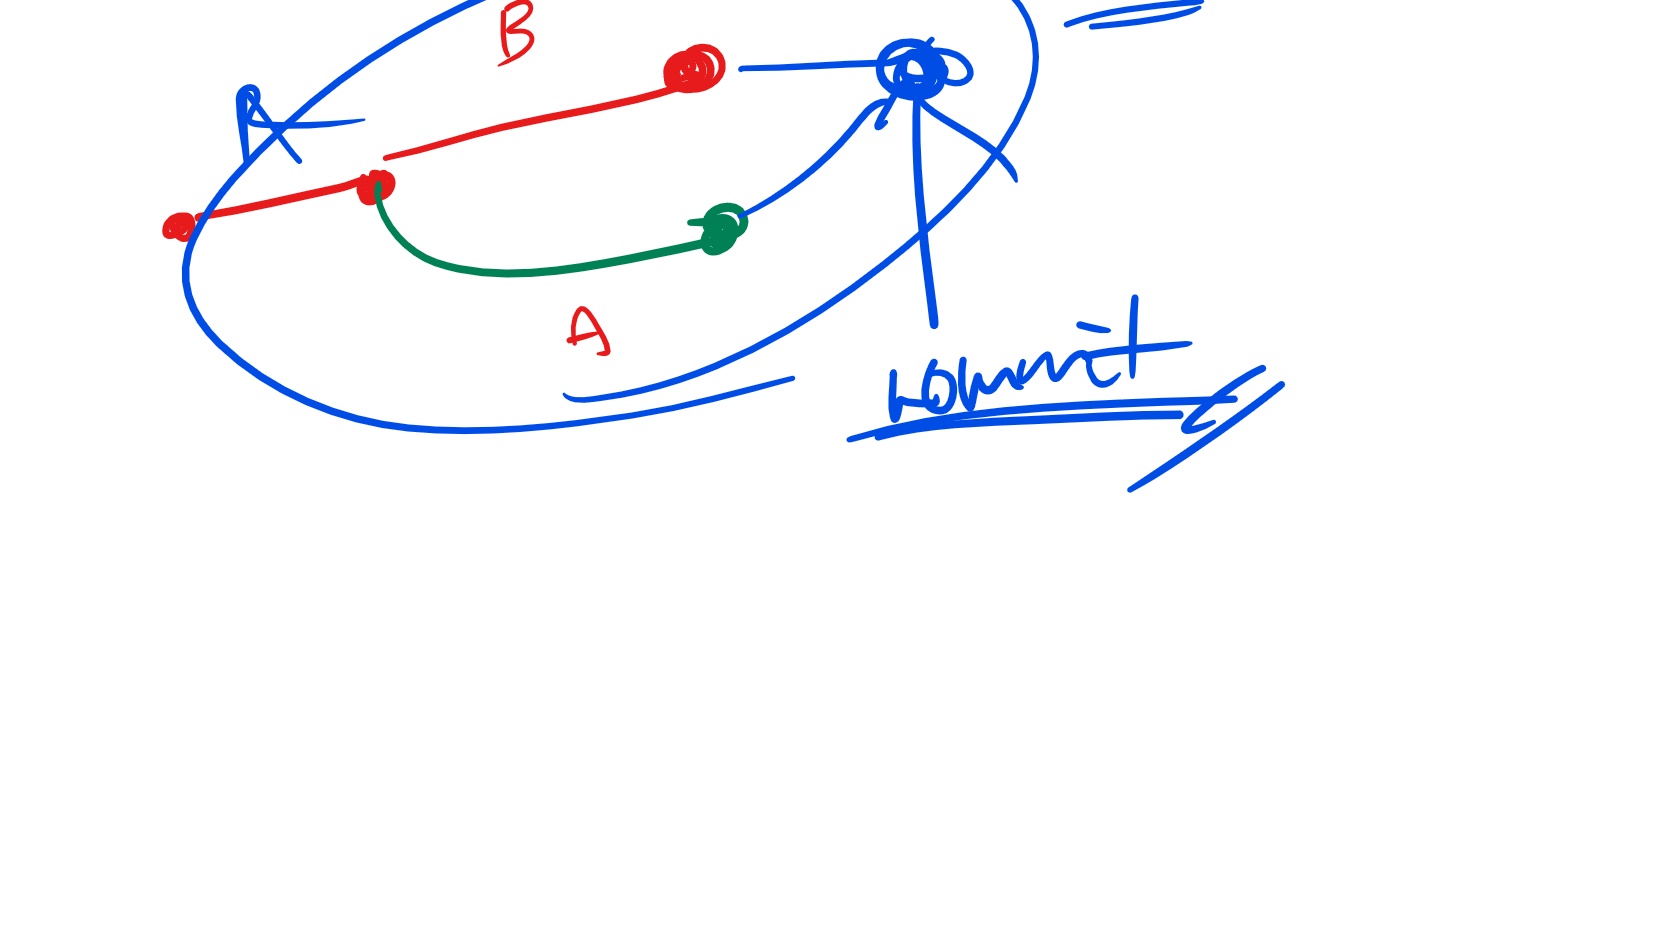 B
R
A
commit